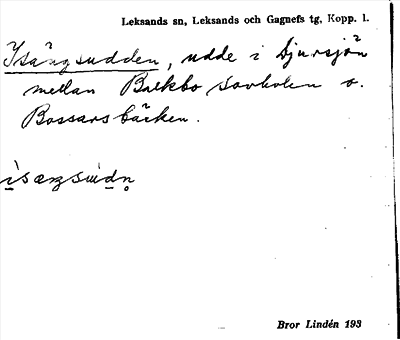 Leksands sn, Leksands och Gagnefs tg, Kopp. l.
Isångsudden, udde i Djursjön
mellan Balkbo o.
Bossarsbäcken.
Bror Lindén 193